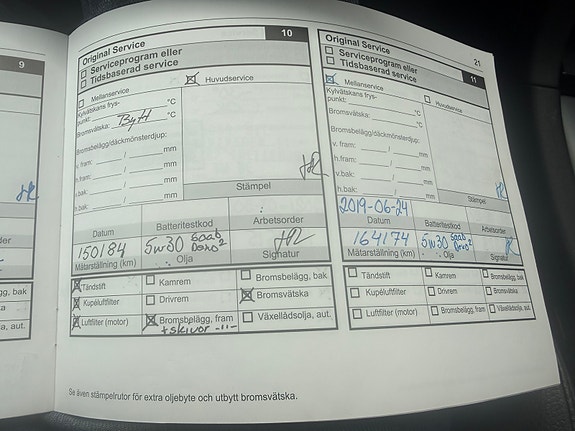 9
Original Service
10
Serviceprogram eller
Tidsbaserad service
Mellanservice
Huvudservice
Kylvätskans frys-
punkt:
°C
Bromsvätska: Bytt °C
Bromsbelägg/däckmönsterdjup:
v. fram: / mm
h.fram: / mm
v.bak: / mm
h.bak: / mm
Stämpel
Datum
Batteritestkod
Arbetsorder
150184
5w30
Mätarställning (km)
Olja
Signatur
Tändstift
Kamrem
Bromsbelägg, bak
Kupéluftfilter
Drivrem
Bromsvätska
Luftfilter (motor)
Bromsbelägg, fram
Växellådsolja, aut.
+skivor -11-
Original Service
21
Serviceprogram eller
Tidsbaserad service
11
Mellanservice
Huvudservice
Kylvätskans frys-
punkt:
°C
Bromsvätska: °C
Bromsbelägg/däckmönsterdjup:
v. fram: / mm
h.fram: / mm
v.bak: / mm
h.bak: / mm
Stämpel
2019-06-24
Datum
Batteritestkod
Arbetsorder
164174
5w30
Mätarställning (km)
Olja
Signatur
Tändstift
Kamrem
Bromsbelägg, bak
Kupéluftfilter
Drivrem
Bromsvätska
Luftfilter (motor)
Bromsbelägg, fram
Växellådsolja, aut.
Se även stämpelrutor för extra oljebyte och utbytt bromsvätska.